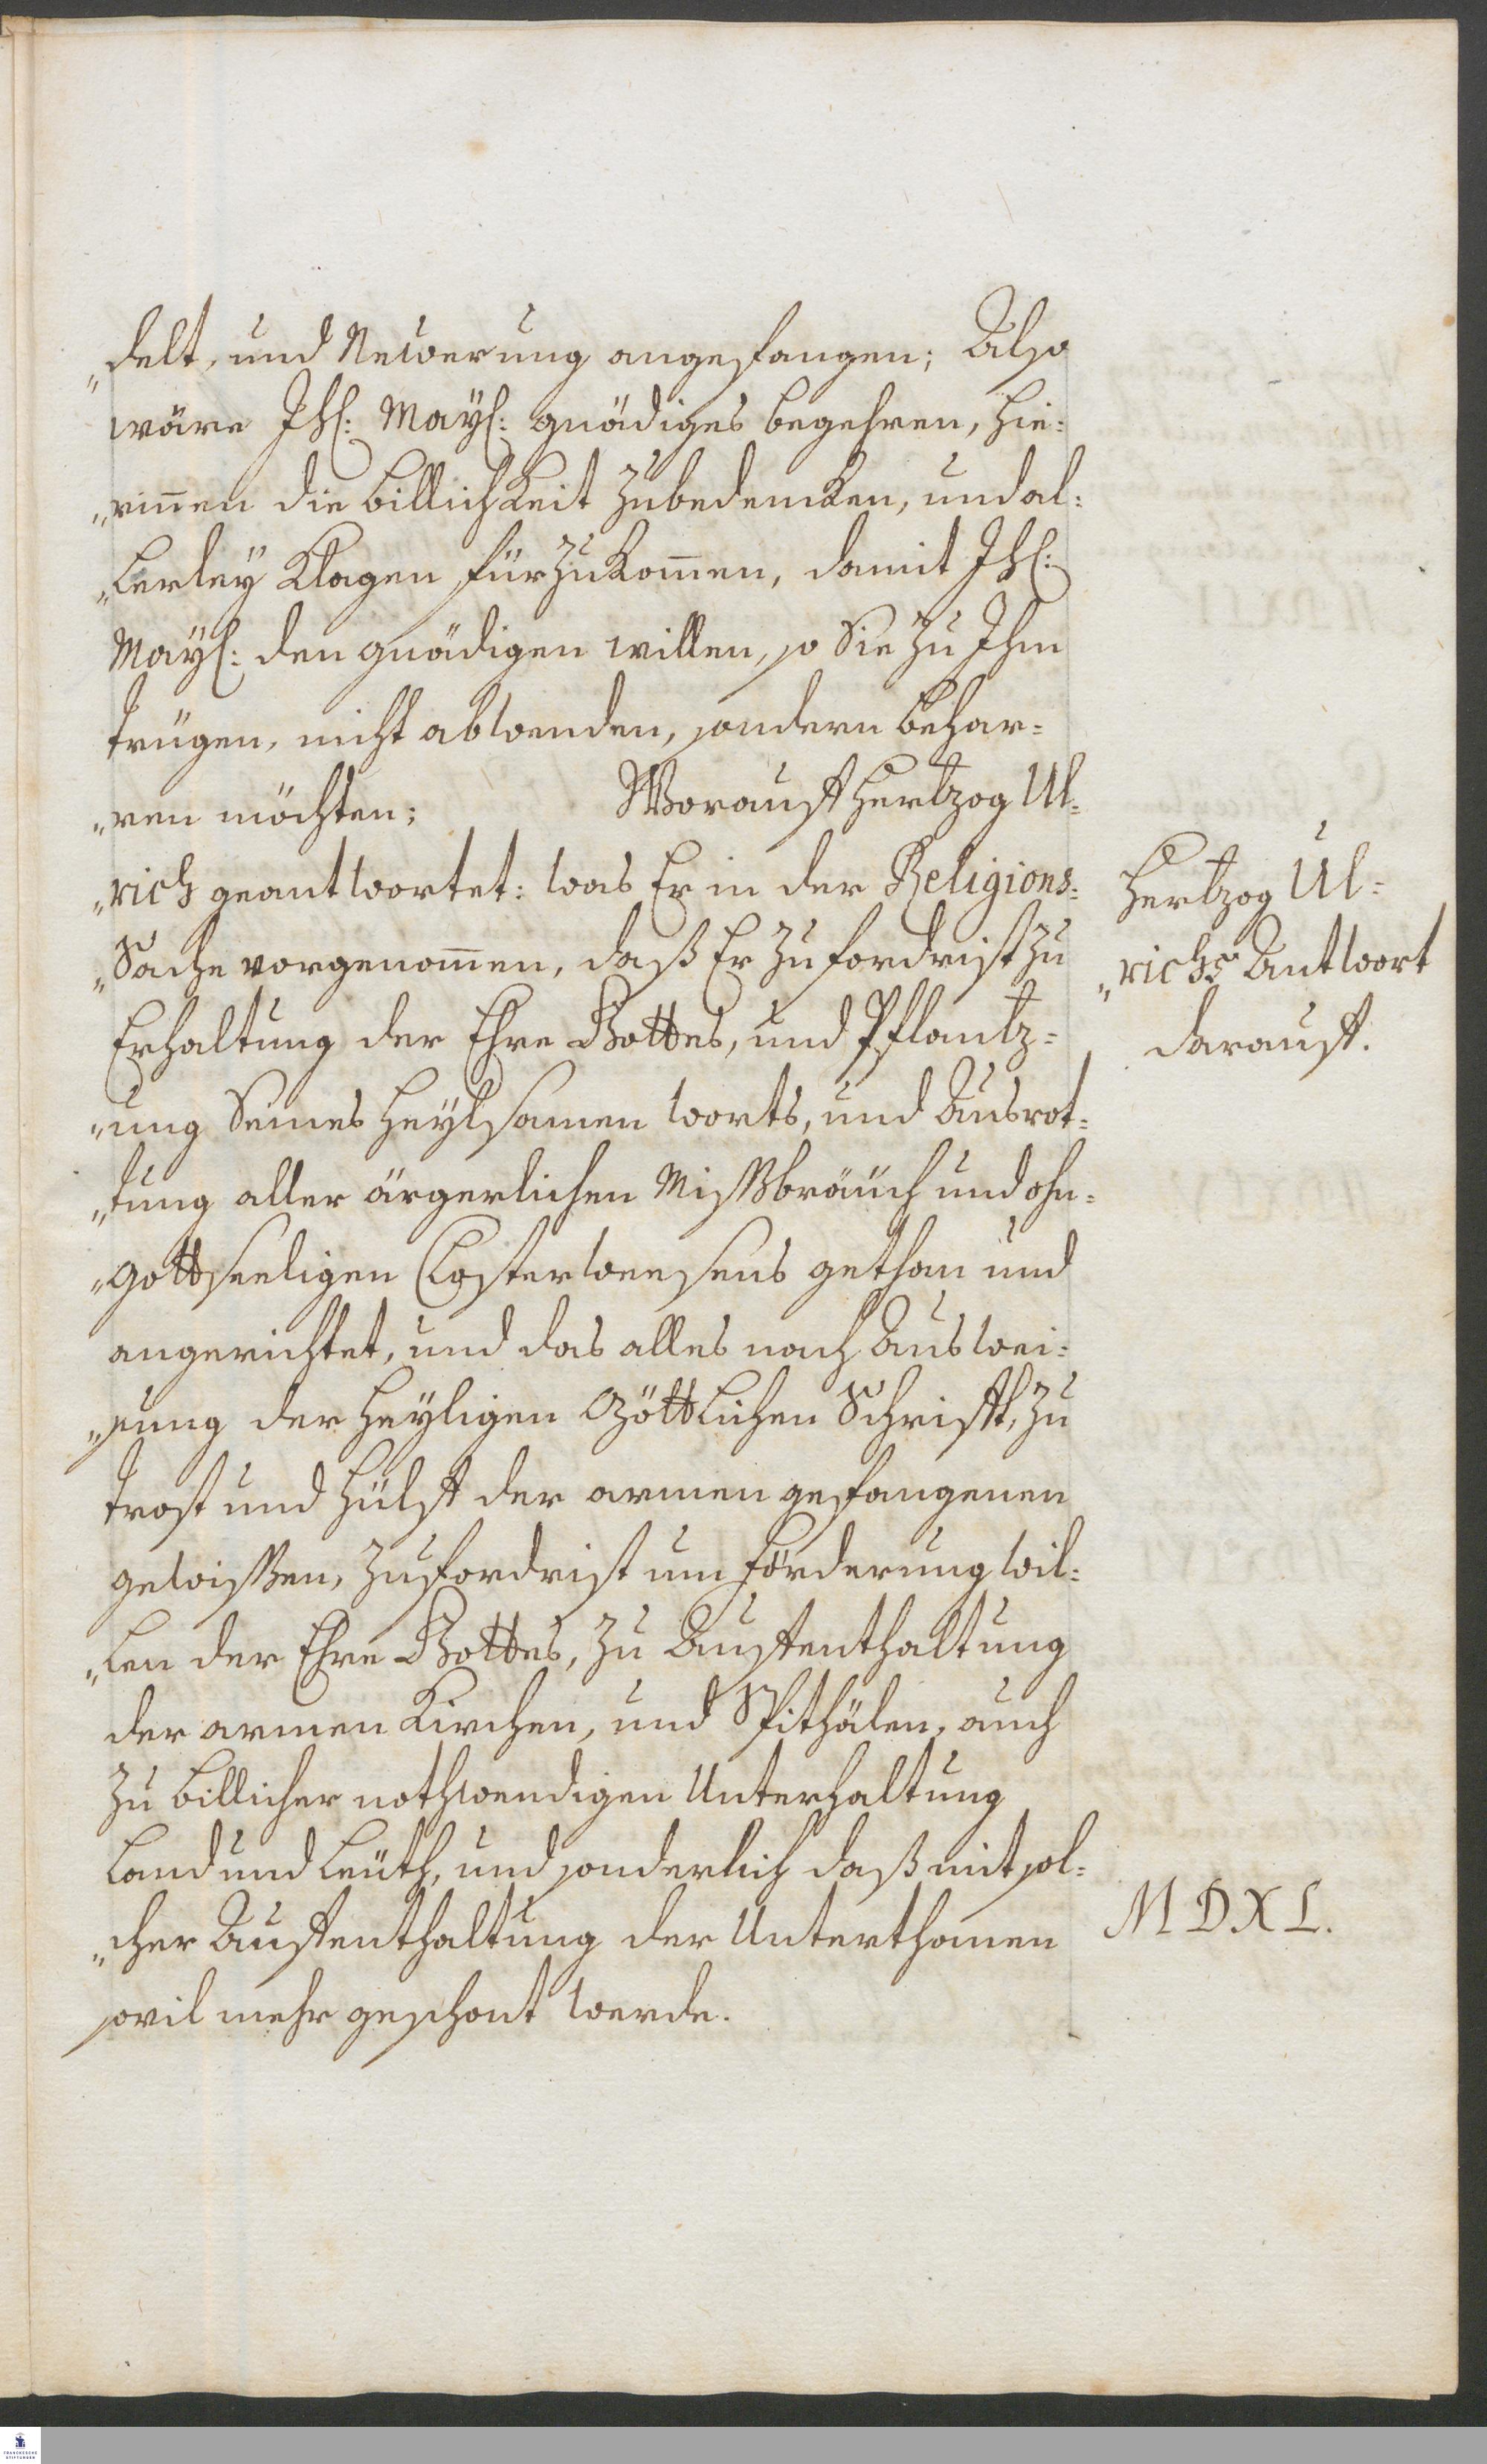 „delt, und Neuerung angefangen; Also
wäre Ihl: Mayl: gnädiges begehren, hie:
„rinnen die billichkeit zubedencken, und al:
„lerley Klagen fürzukom̄en, damit Ihl:
Mayl: den gnädigen willen, so Sie zu Ihm
trügen, nicht abwenden, sondern behar=
„ren möchten; Worauff Hertzog Ul=
„rich geantwortet: was Er in der Religions=
„Sache vorgenom̄en, daß Er zufordrist zu
Erhaltung der Ehre Gottes, und Pflantz=
„ung Seines heylsamen worts, und Ausrot=
„tung aller ärgerlichen Mißbräüch und ohn=
„gottseeligen Closterweesens gethan und
angerichtet, und das alles nach Auswei=
„sung der heyligen Göttlichen Schrifft, zu
trost und hülff der armen gefangenen
gewissen, zufordrist um förderung wil=
„len der Ehre Gottes, zu Auffenthaltung
der armen Kirchen, und Spithälen, auch
zu billicher nothwendigen Unterhaltung
Land und Leüth, und sonderlich daß mit sol=
„cher Auffenthaltung der Unterthanen
sovil mehr geschont werde.
Hertzog Ul=
„richs Antwort
darauff.
MDXL.
FRANCKESCHE
STIFTUNGEN